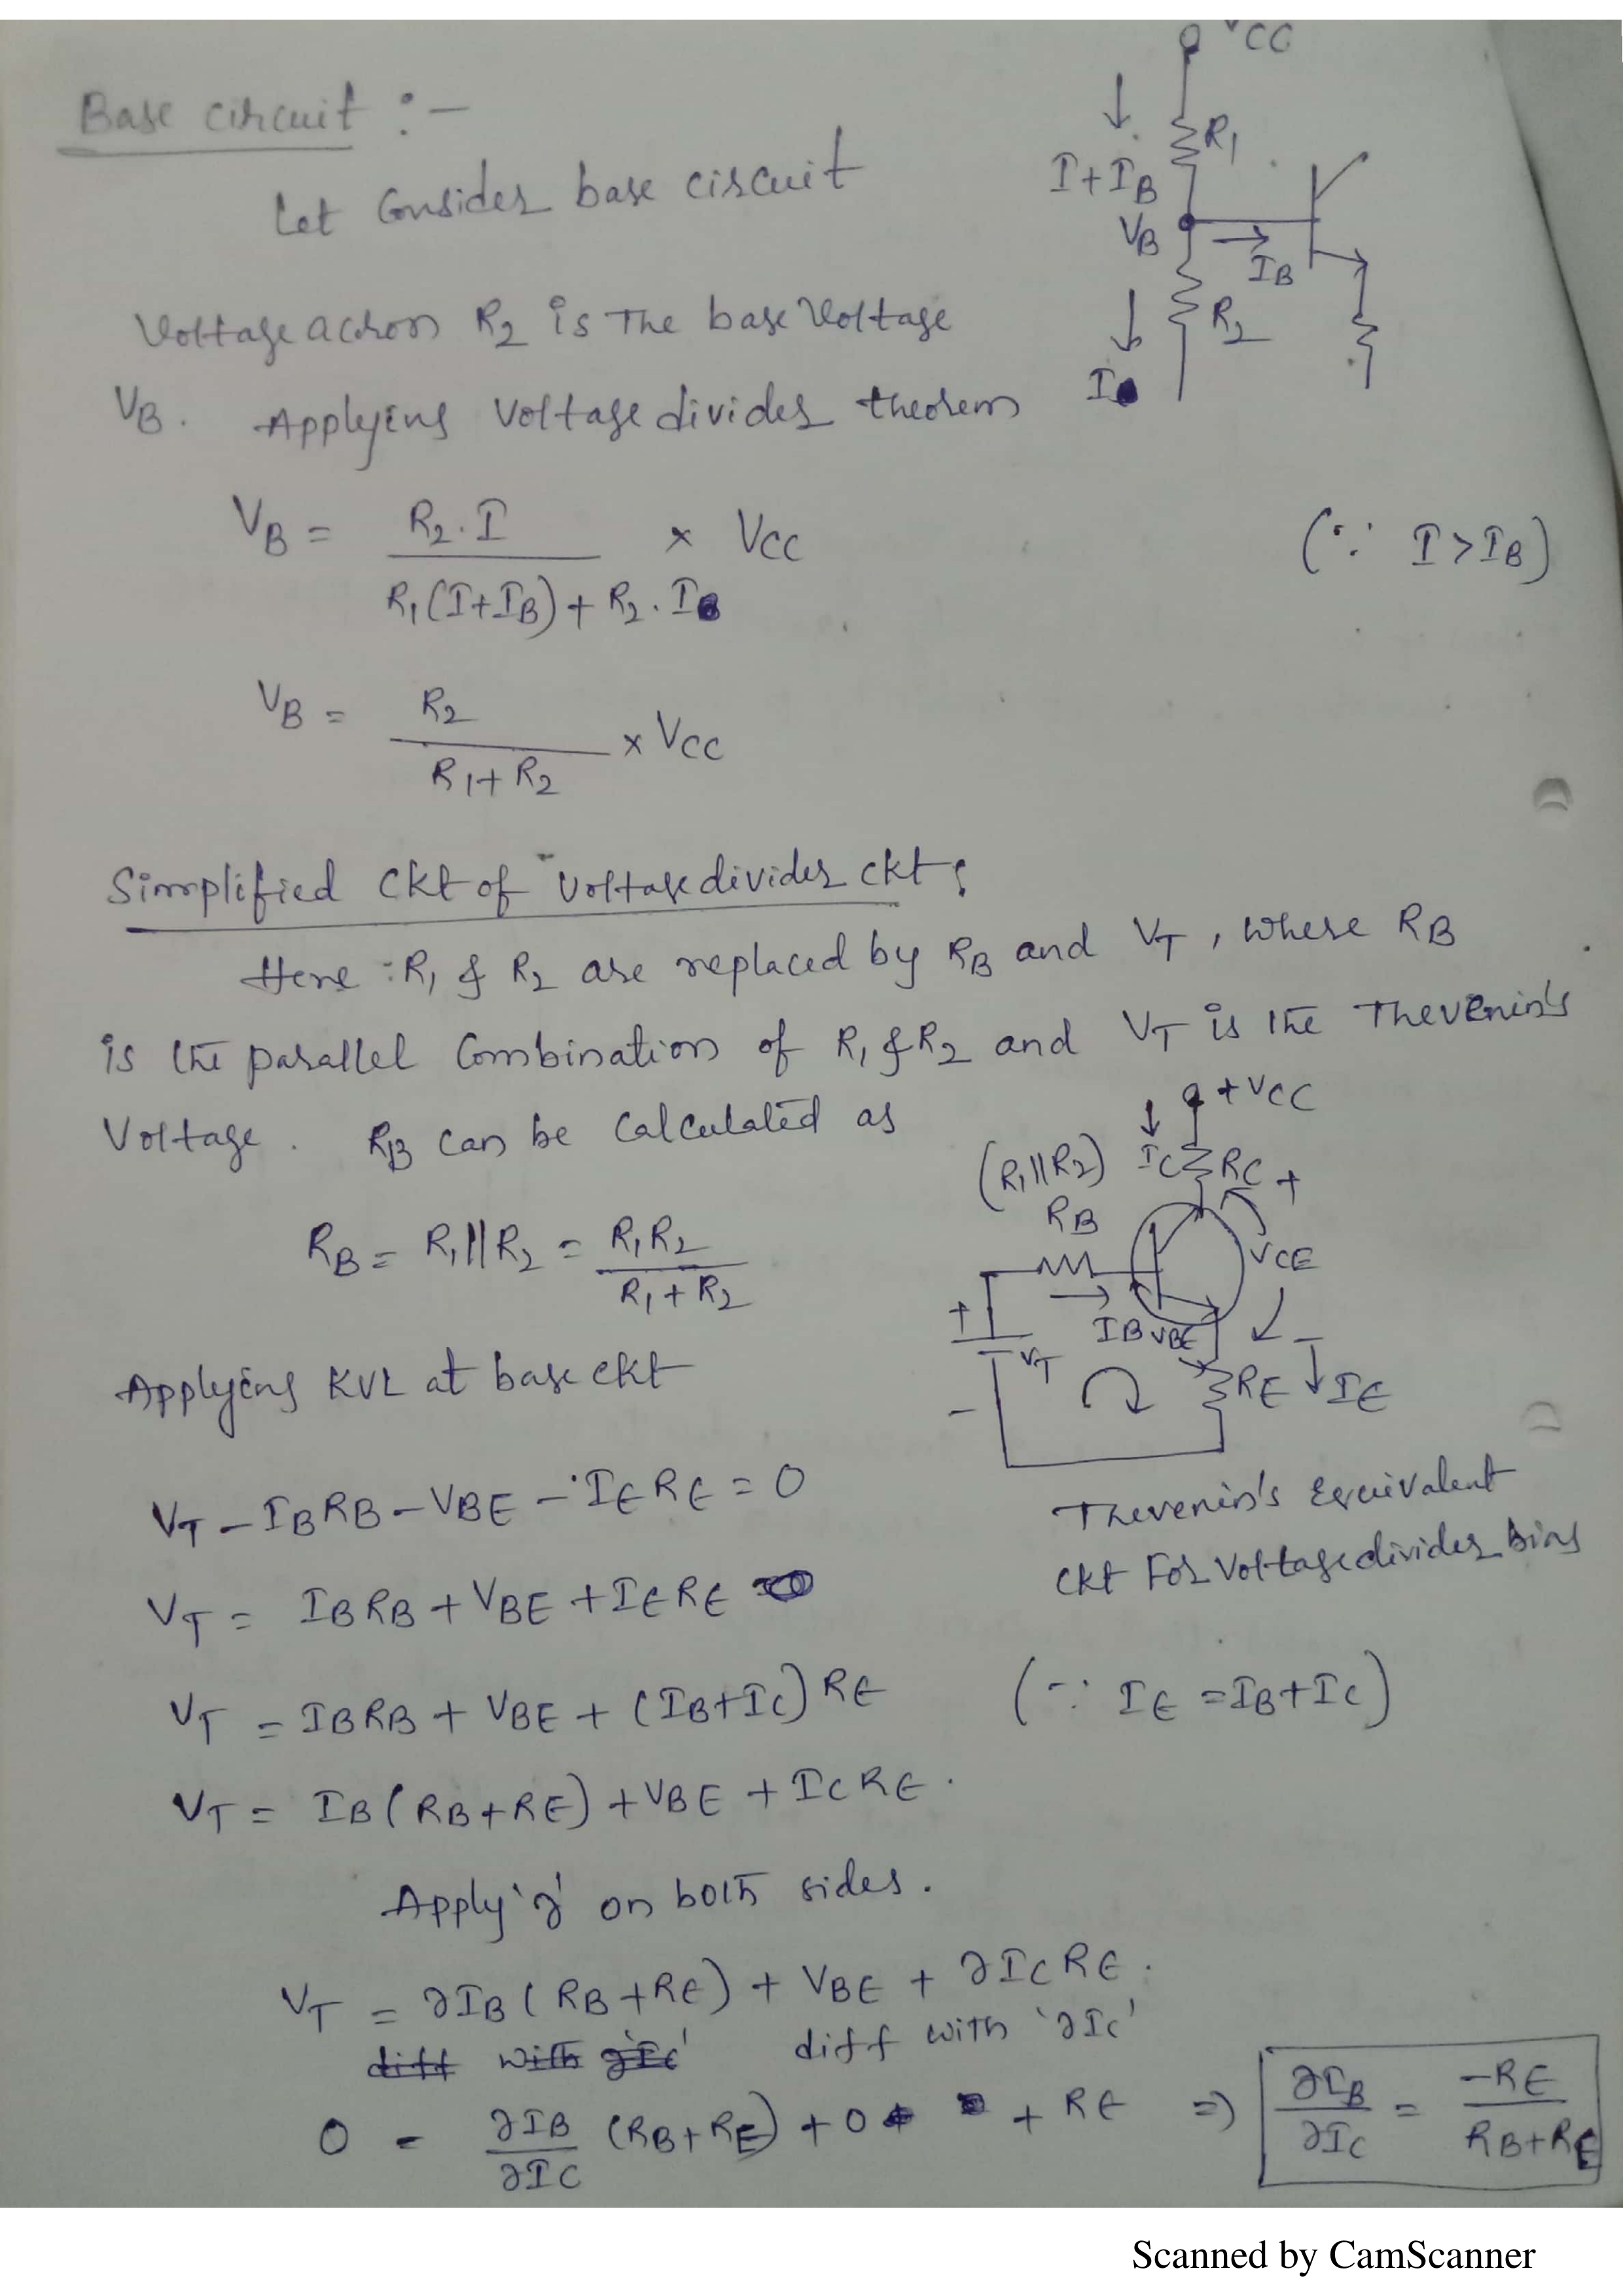 VCC
Base circuit :-
R1
I+IB
Let Consider base circuit
VB
IB
Voltage across R2 is The base Voltage
R2
I
VB. Applying Voltage divider theorem
VB = R2.I / R1(I+IB) + R2.I × VCC (∵ I>IB)
VB = R2 / R1+R2 × VCC
Simplified Ckt of Voltage divider ckt:
Here R1 & R2 are replaced by RB and VT, where RB
is the parallel Combination of R1 & R2 and VT is the Thevenin's
Voltage. RB can be Calculated as
+VCC
(R1||R2)
IC
RC +
RB
RB = R1||R2 = R1R2 / R1+R2
VCE
+
IB VBE
VT
-
RE
IE
-
Applying KVL at base ckt
VT - IBRB - VBE - IERE = 0
Thevenin's Equivalent
ckt For Voltage divider bias
VT = IBRB + VBE + IERE
VT = IBRB + VBE + (IB+IC)RE (∵ IE = IB+IC)
VT = IB(RB+RE) + VBE + ICRE.
Apply '∂' on both sides.
VT = ∂IB(RB+RE) + VBE + ∂ICRE.
diff with '∂Ic' diff with '∂Ic'
0 = ∂IB/∂IC (RB+RE) + 0 + RE ⇒ ∂IB/∂IC = -RE / RB+RE
Scanned by CamScanner